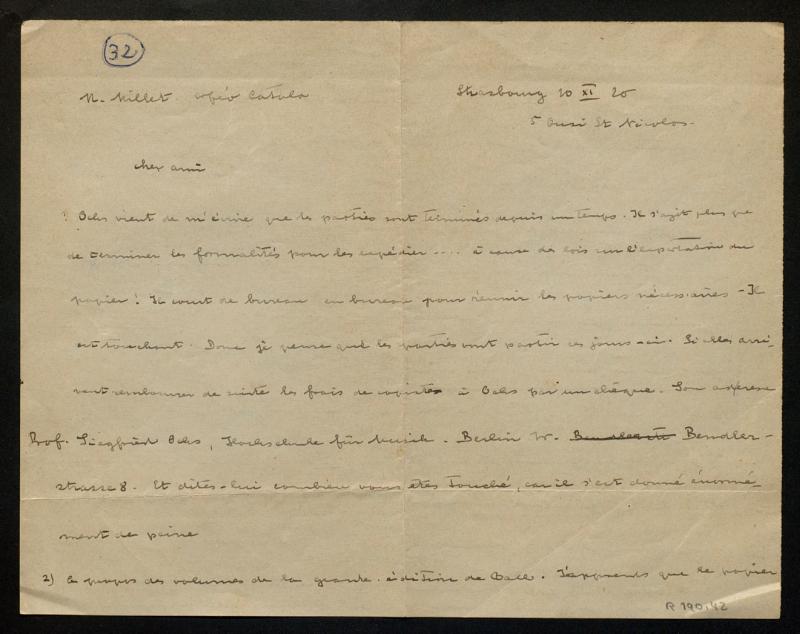 32
M. Millet. orféo Catala
Strasbourg 20 XI 20
5 Quai St Nicolas.
cher ami
Ochs vient de m'écrire que les parties sont terminés depuis un temps. Il s'agit plus que
de terminer les formalités pour les expédier .... à cause des lois sur l'exportation du
papier! Il court de bureau en bureau pour réunir les papiers nécessaires - Il
est touchant. Donc je pense que les parties vont partir ces jours-ci. Si elles arri-
vent rembourser de suite les frais de copiste à Ochs par un chèque. Son adresse
Prof. Siegfried Ochs, Hochschule für Musik. Berlin W. Bendler-
strasse 8. Et dites-lui combien vous êtes touché, car il s'est donné énormé-
ment de peine
2) A propos des volumes de la grande édition de Bach. J'apprends que le papier
R 190,42